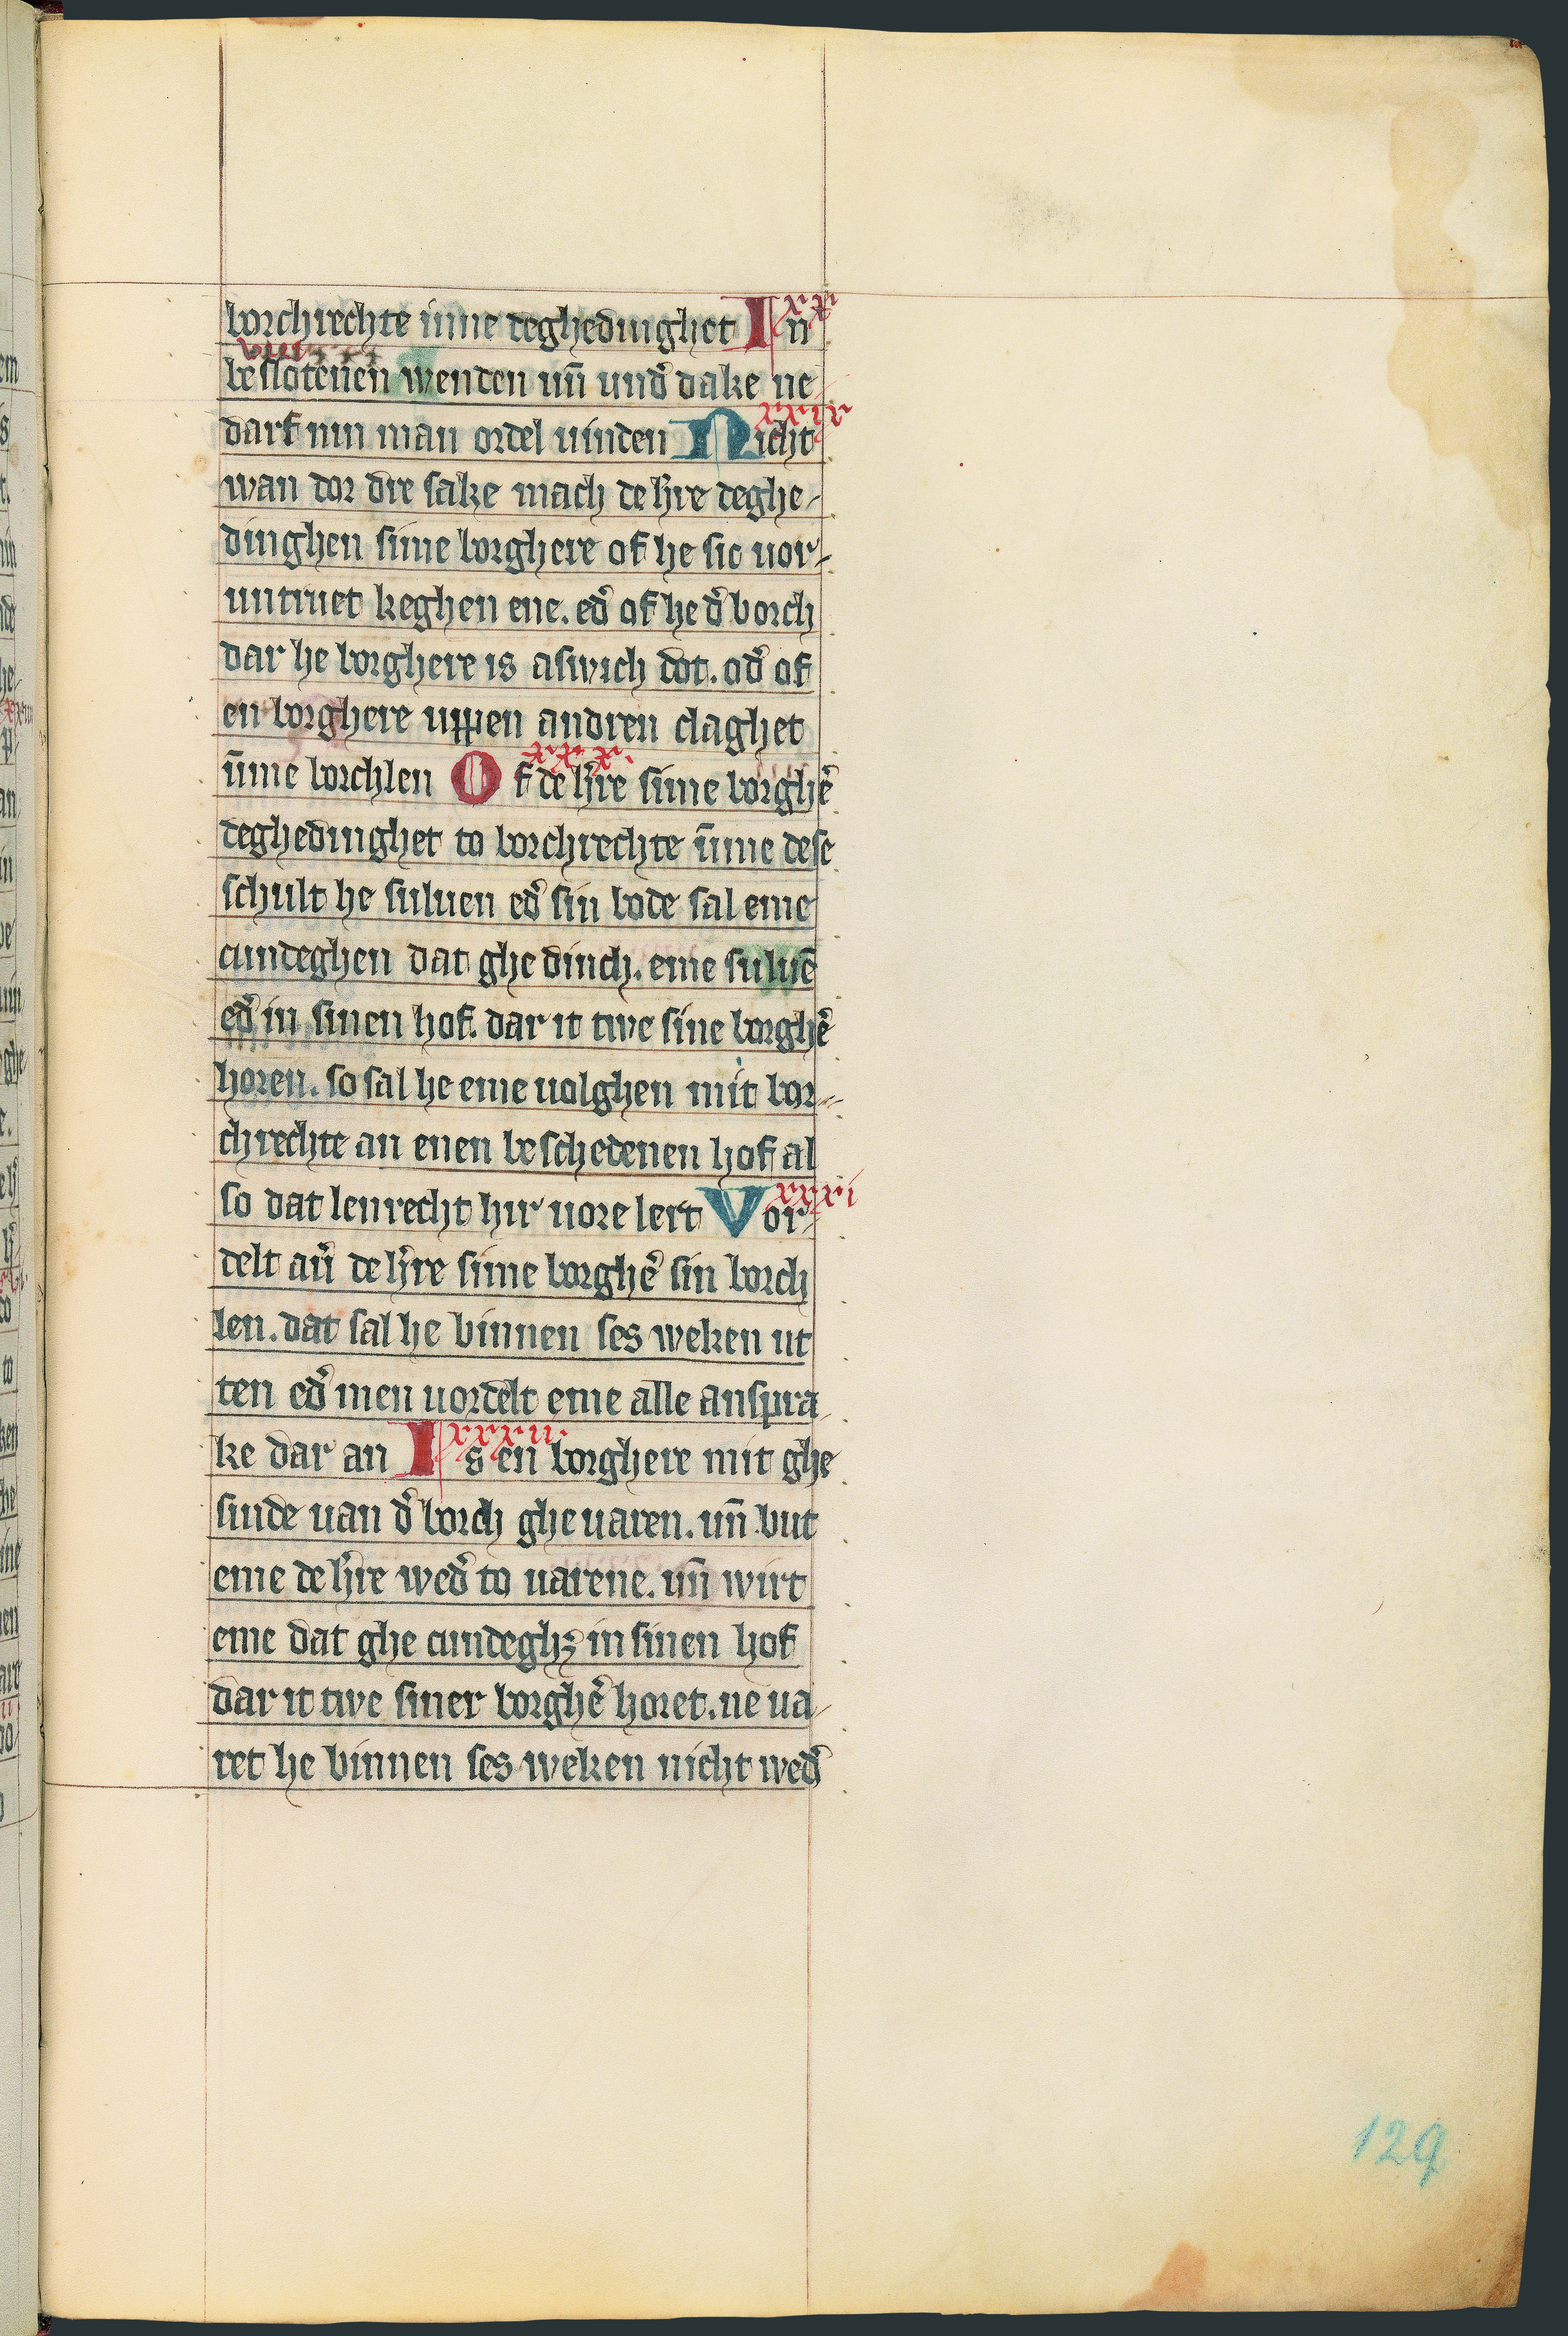 borchrechte inne deghedinghet In xx
viii
beslotenen wenden un̄ und͛ dake ne
darf nin man ordel uinden Nicht xxix
wan dor dre sake mach de h͛re deghe-
dinghen sime borghere of he sic uor-
untruet keghen ene. ed͛ of he d͛ borch
dar he borghere is aswich dot. od͛ of
en borghere uppen andren claghet
ūme borchlen Of de h͛re sime borgh͛e xxx.
deghedinghet to borchrechte ūme dese
schult he suluen ed͛ sin bode sal eme
cundeghen dat ghe dinch. eme suluē
ed͛ in sinen hof. dar it twe sine borgh͛e
horen. so sal he eme uolghen mit bor-
chrechte an enen beschedenen hof al
so dat lenrecht hir uore lert Vor- xxxi
delt au͛ de h͛re sime borgh͛e sin borch
len. dat sal he binnen ses weken ut
ten ed͛ men uordelt eme alle anspra-
ke dar an Is en borghere mit ghe xxxii.
sinde uan d͛ borch ghe uaren. un̄ but
eme de h͛re wed͛ to uarene. un̄ wirt
eme dat ghe cundeghꝫ in sinen hof
dar it twe siner borgh͛e horet. ne ua-
ret he binnen ses weken nicht wed͛
129